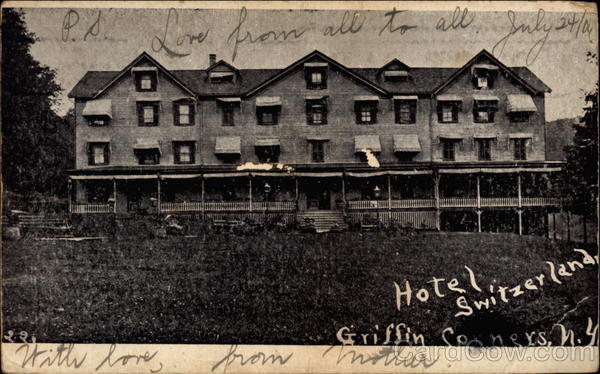 P.S. Love from all to all. July 24/0
Hotel
Switzerland,
Griffin Corners, N.Y
22.
With love, from Mother.
CardCow.com